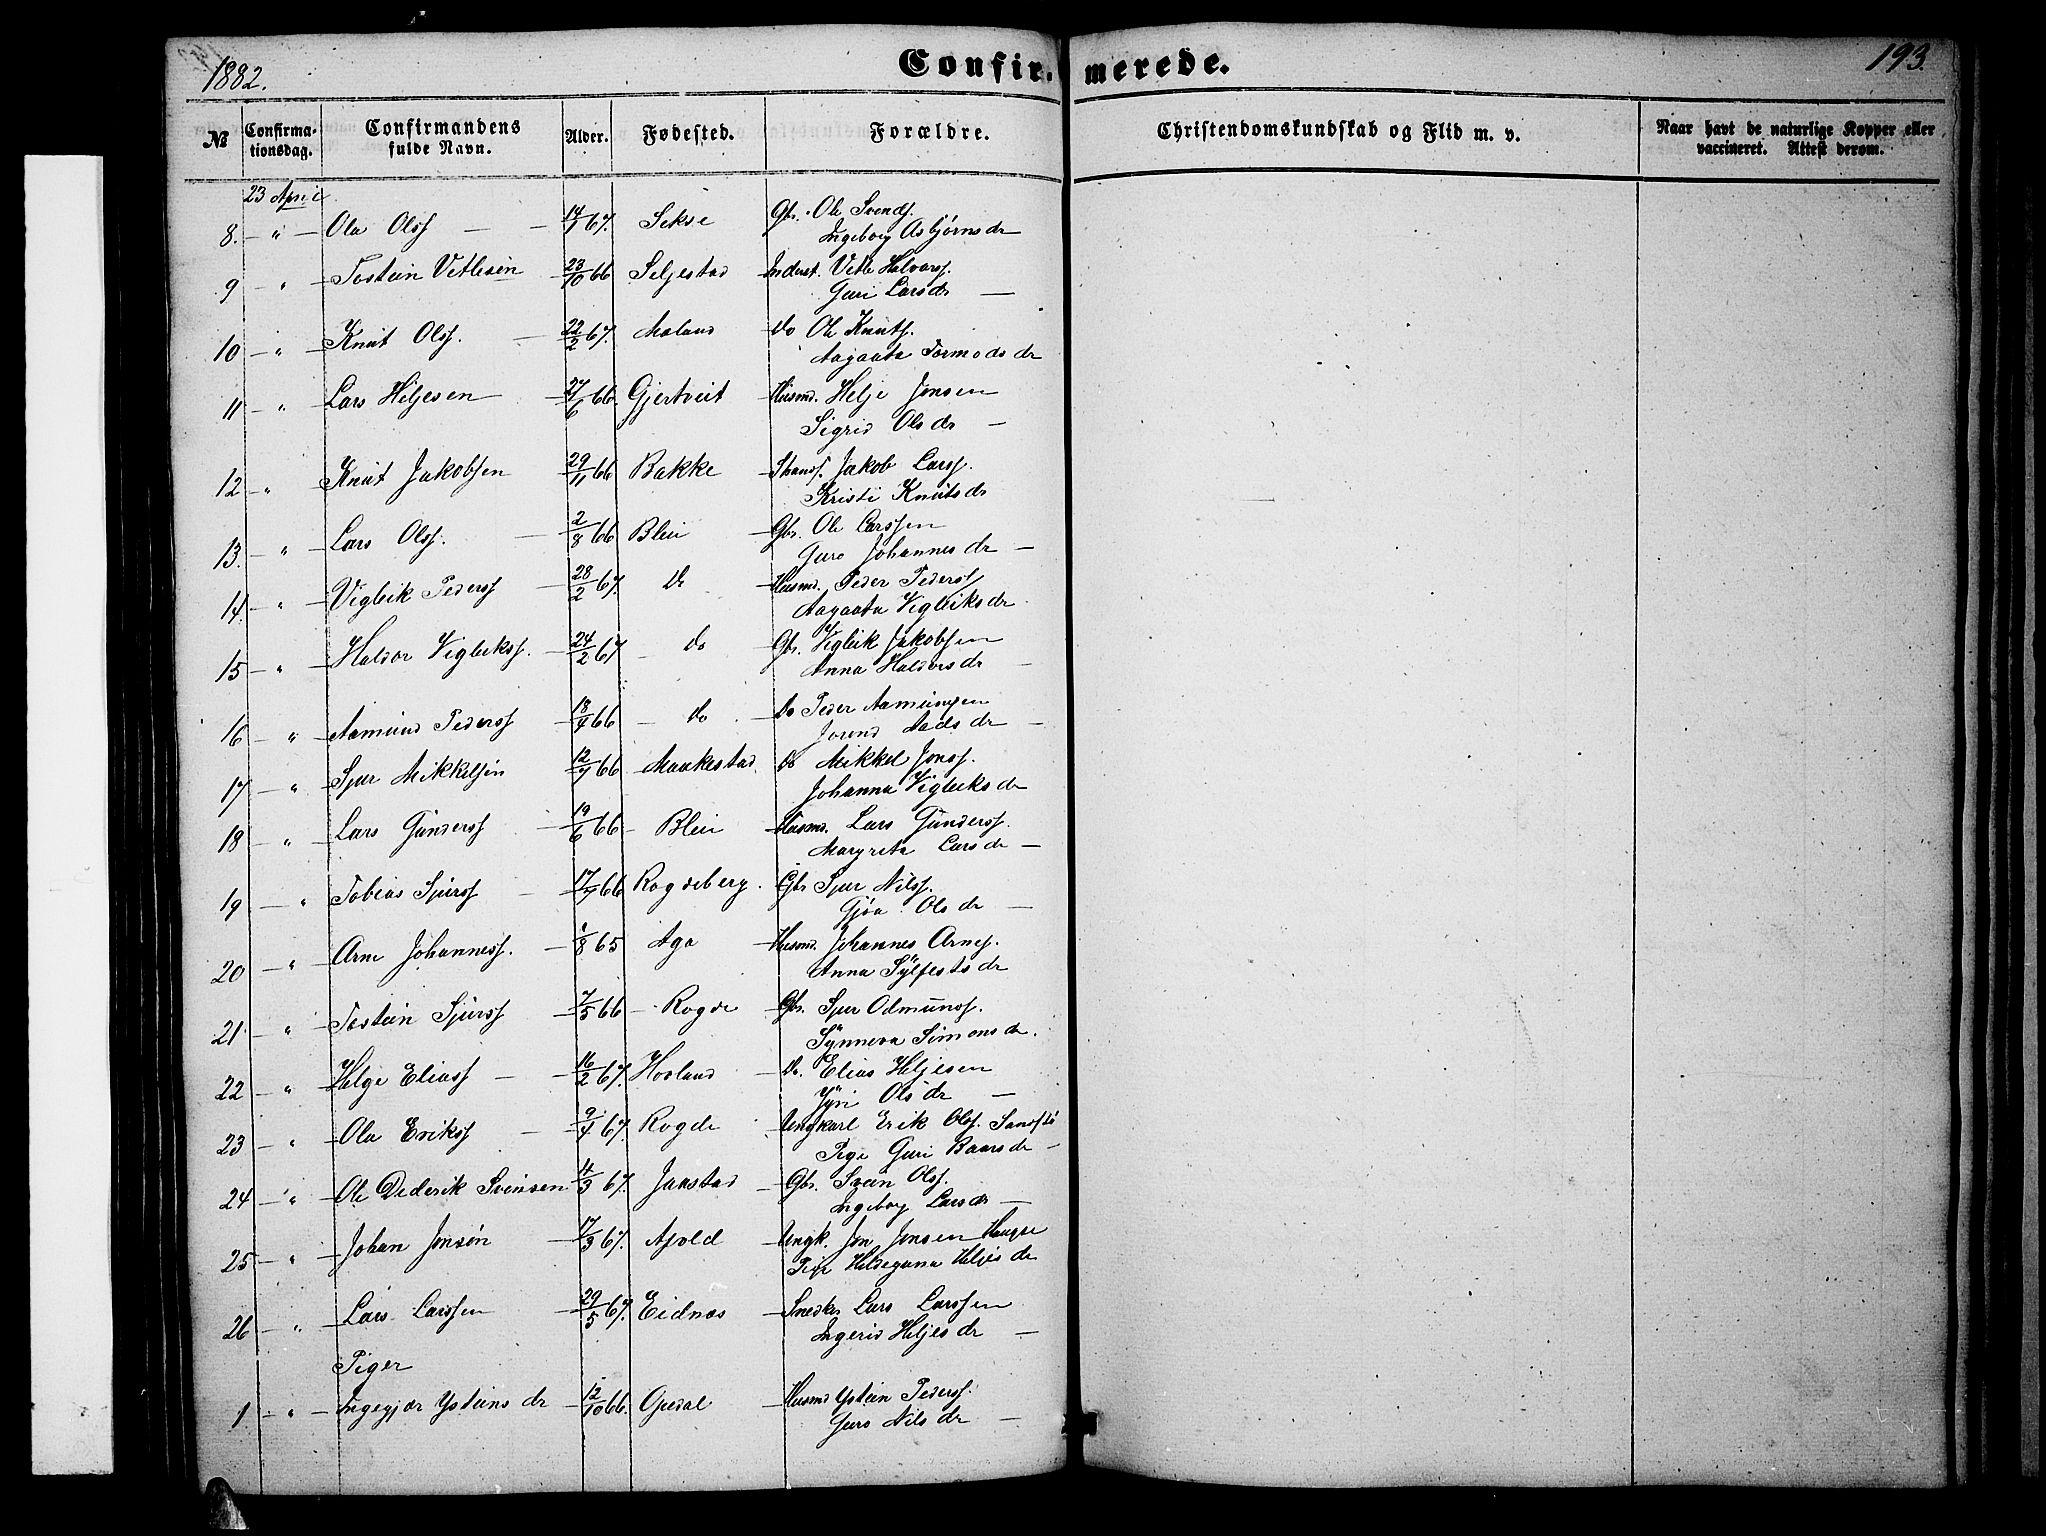 1882.
Confir- merede.
193.
№
Confirma-
tionsdag.
Confirmandens
fulde Navn.
Alder.
Fødested.
Forældre.
Christendomskundskab og Flid m. v.
Naar havt de naturlige Kopper eller
vaccineret. Attest derom.
23 April
8. — " — Ola Olsf — 14/1 67. Sekse Gbr. Ole Svends.
Ingeborg Asbjørnsdr
9 — " — Tostein Vetlesen — 23/10 66 Seljestad — Inderst. Vetle Halvors.
Guri Larsdr —
10 — " — Knut Olsf. — 22/2 67. Moland — Do Ole Knuts.
Aagaata Tormodsdr
11 — " — Lars Heljesen — 27/6 66. Gjertveit — Husmd. Helje Jonsen
Sigrid Olsdr —
12 — " — Knut Jakobsen — 29/11 66 Bakke — Jakob Larss.
Kristi Knutsdr
13. — " — Lars Olsf. — 2/8 66 Bleie — Gbr. Ole Larssen
Guro Johannesdr —
14. — " — Vigleik Pedersf — 28/2 67. Do — Husmd. Peder Pedersf
Aagaata Vigleiksdr
15 — " — Haldor Vigleiksf. — 24/2 67 — Do Gbr. Vigleik Jakobsen
Anna Haldorsdr —
16 — " — Aamund Pedersf — 18/4 66 — Do — Do Peder Aamundsen
Jorend Aadsdr —
17 — " — Sjur Mikkelsen — 12/7 66 — Maakestad Do Mikkel Jonsf.
Johanna Vigleiksdr
18 — " — Lars Gundersf — 19/6 66 — Bleie — Husmd. Lars Gundersf.
Margreta Larsdr —
19 — " — Tobias Sjursf — 17/7 66 Rogdeberg. Gbr Sjur Nilsf.
Gjøa Olsdr —
20 — " — Arne Johannesf. — 1/8 65 Aga — Husmd. Johannes Arnes.
Anna Sylfestsdr
21 — " — Tostein Sjursf — 7/5 66 — Rogde — Gbr. Sjur Odmunds.
Synneva Simonsdr.
22 — " — Helge Eliasf — 16/2 67. Hovland — Do. Elias Heljesen
Jyri Olsdr —
23 — " — Ola Eriksf — 9/4 67. Rogde — Ungkarl Erik Olsf.
Pige Guri Baarsdr —
24 — " — Ole Diderik Svensen 4/3 67. Jaastad — Gbr. Svein Olsf.
Ingeborg Larsdr —
25 — " — Johan Jonsøn — 17/3 67. Apold — Ungk. Jon Jonsen Hauge
Pige Hildeguna Heljesdr
26 — " — Lars Larssen — 29/5 67. Eidnes — Snedker Lars Larssen
Ingerid Heljesdr —
Piger
1 — " — Ingegjær Ysteinsdr — 12/10 66. Opedal — Husmd Ystein Pedersf.
Guro Nilsdr —